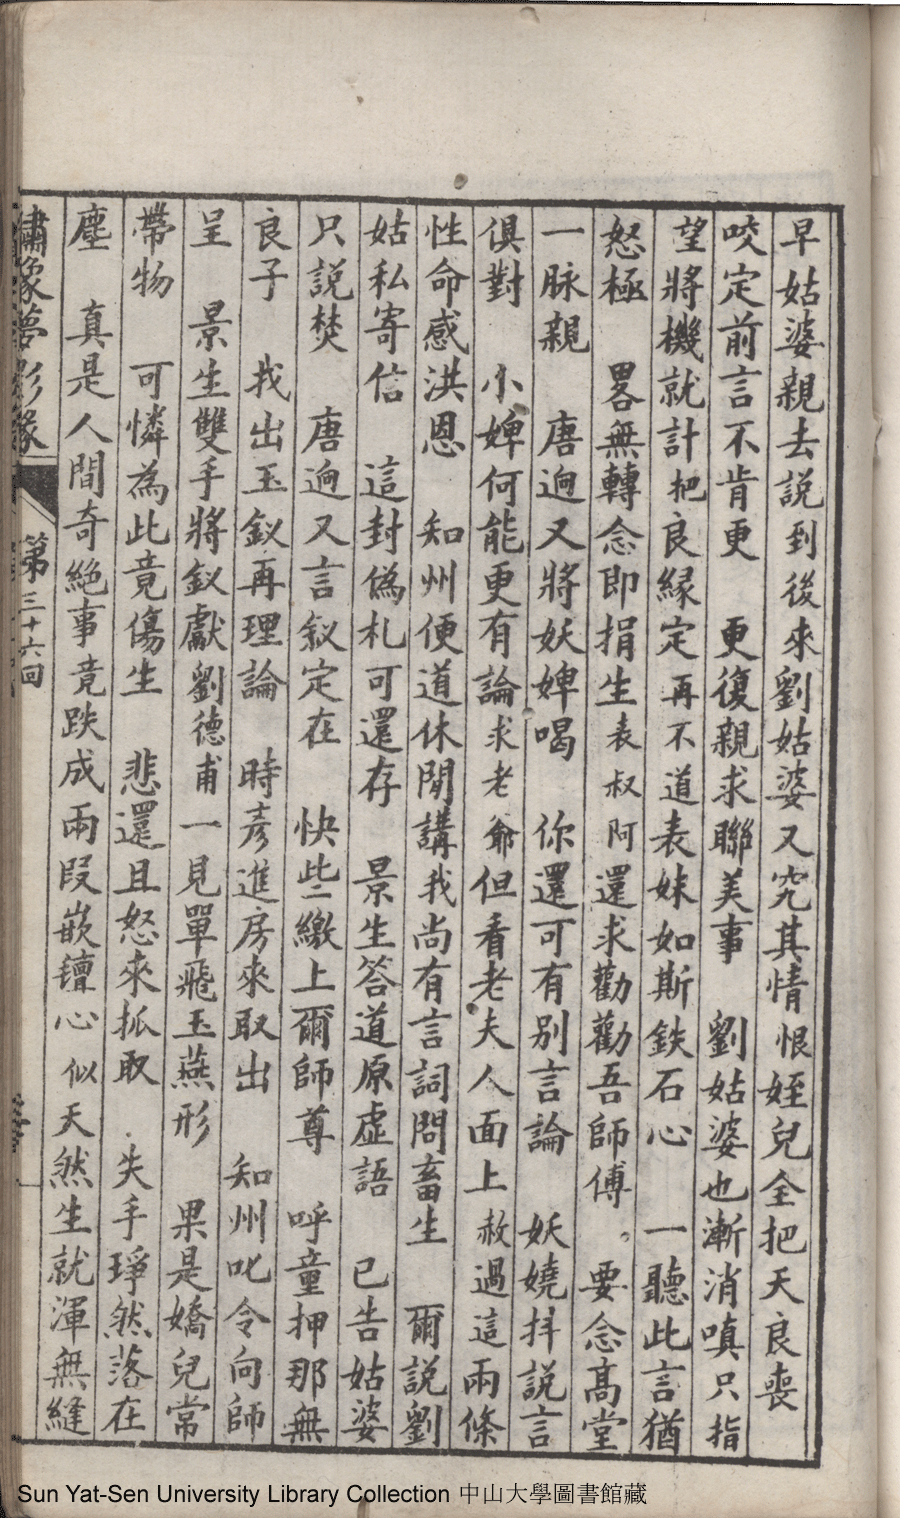 早姑婆親去説到後來劉姑婆又究其情恨姪兒全把天良喪
咬定前言不肯更　更復親求聯美事　劉姑婆也漸消嗔只指
望將機就計把良緣定再不道表妹如斯鉄石心　一聽此言猶
怒極　畧無轉念即捐生表叔阿還求勸勸吾師傅。要念高堂
一脉親　唐逈又將妖婢喝　你還可有别言論　妖嬈拜説言
俱對　小婢何能更有論求老爺但看老夫人面上赦過這兩條
性命感洪恩　知州便道休閒講我尚有言詞問畜生　爾説劉
姑私寄信　這封僞札可還存　景生答道原虚語　已告姑婆
只説焚　唐逈又言釵定在　快些繳上爾師尊　呼童押那無
良子　我出玉釵再理論　時彦進房來取出　知州叱令向師
呈　景生雙手將釵獻劉德甫一見單飛玉燕形　果是嬌兒常
帶物　可憐為此竟傷生　悲還且怒來抓取　失手琤然落在
塵　真是人間奇絶事竟跌成兩段嵌鐘心似天然生就渾無縫
繡像夢影緣　第三十六回
Sun Yat-Sen University Library Collection 中山大學圖書館藏